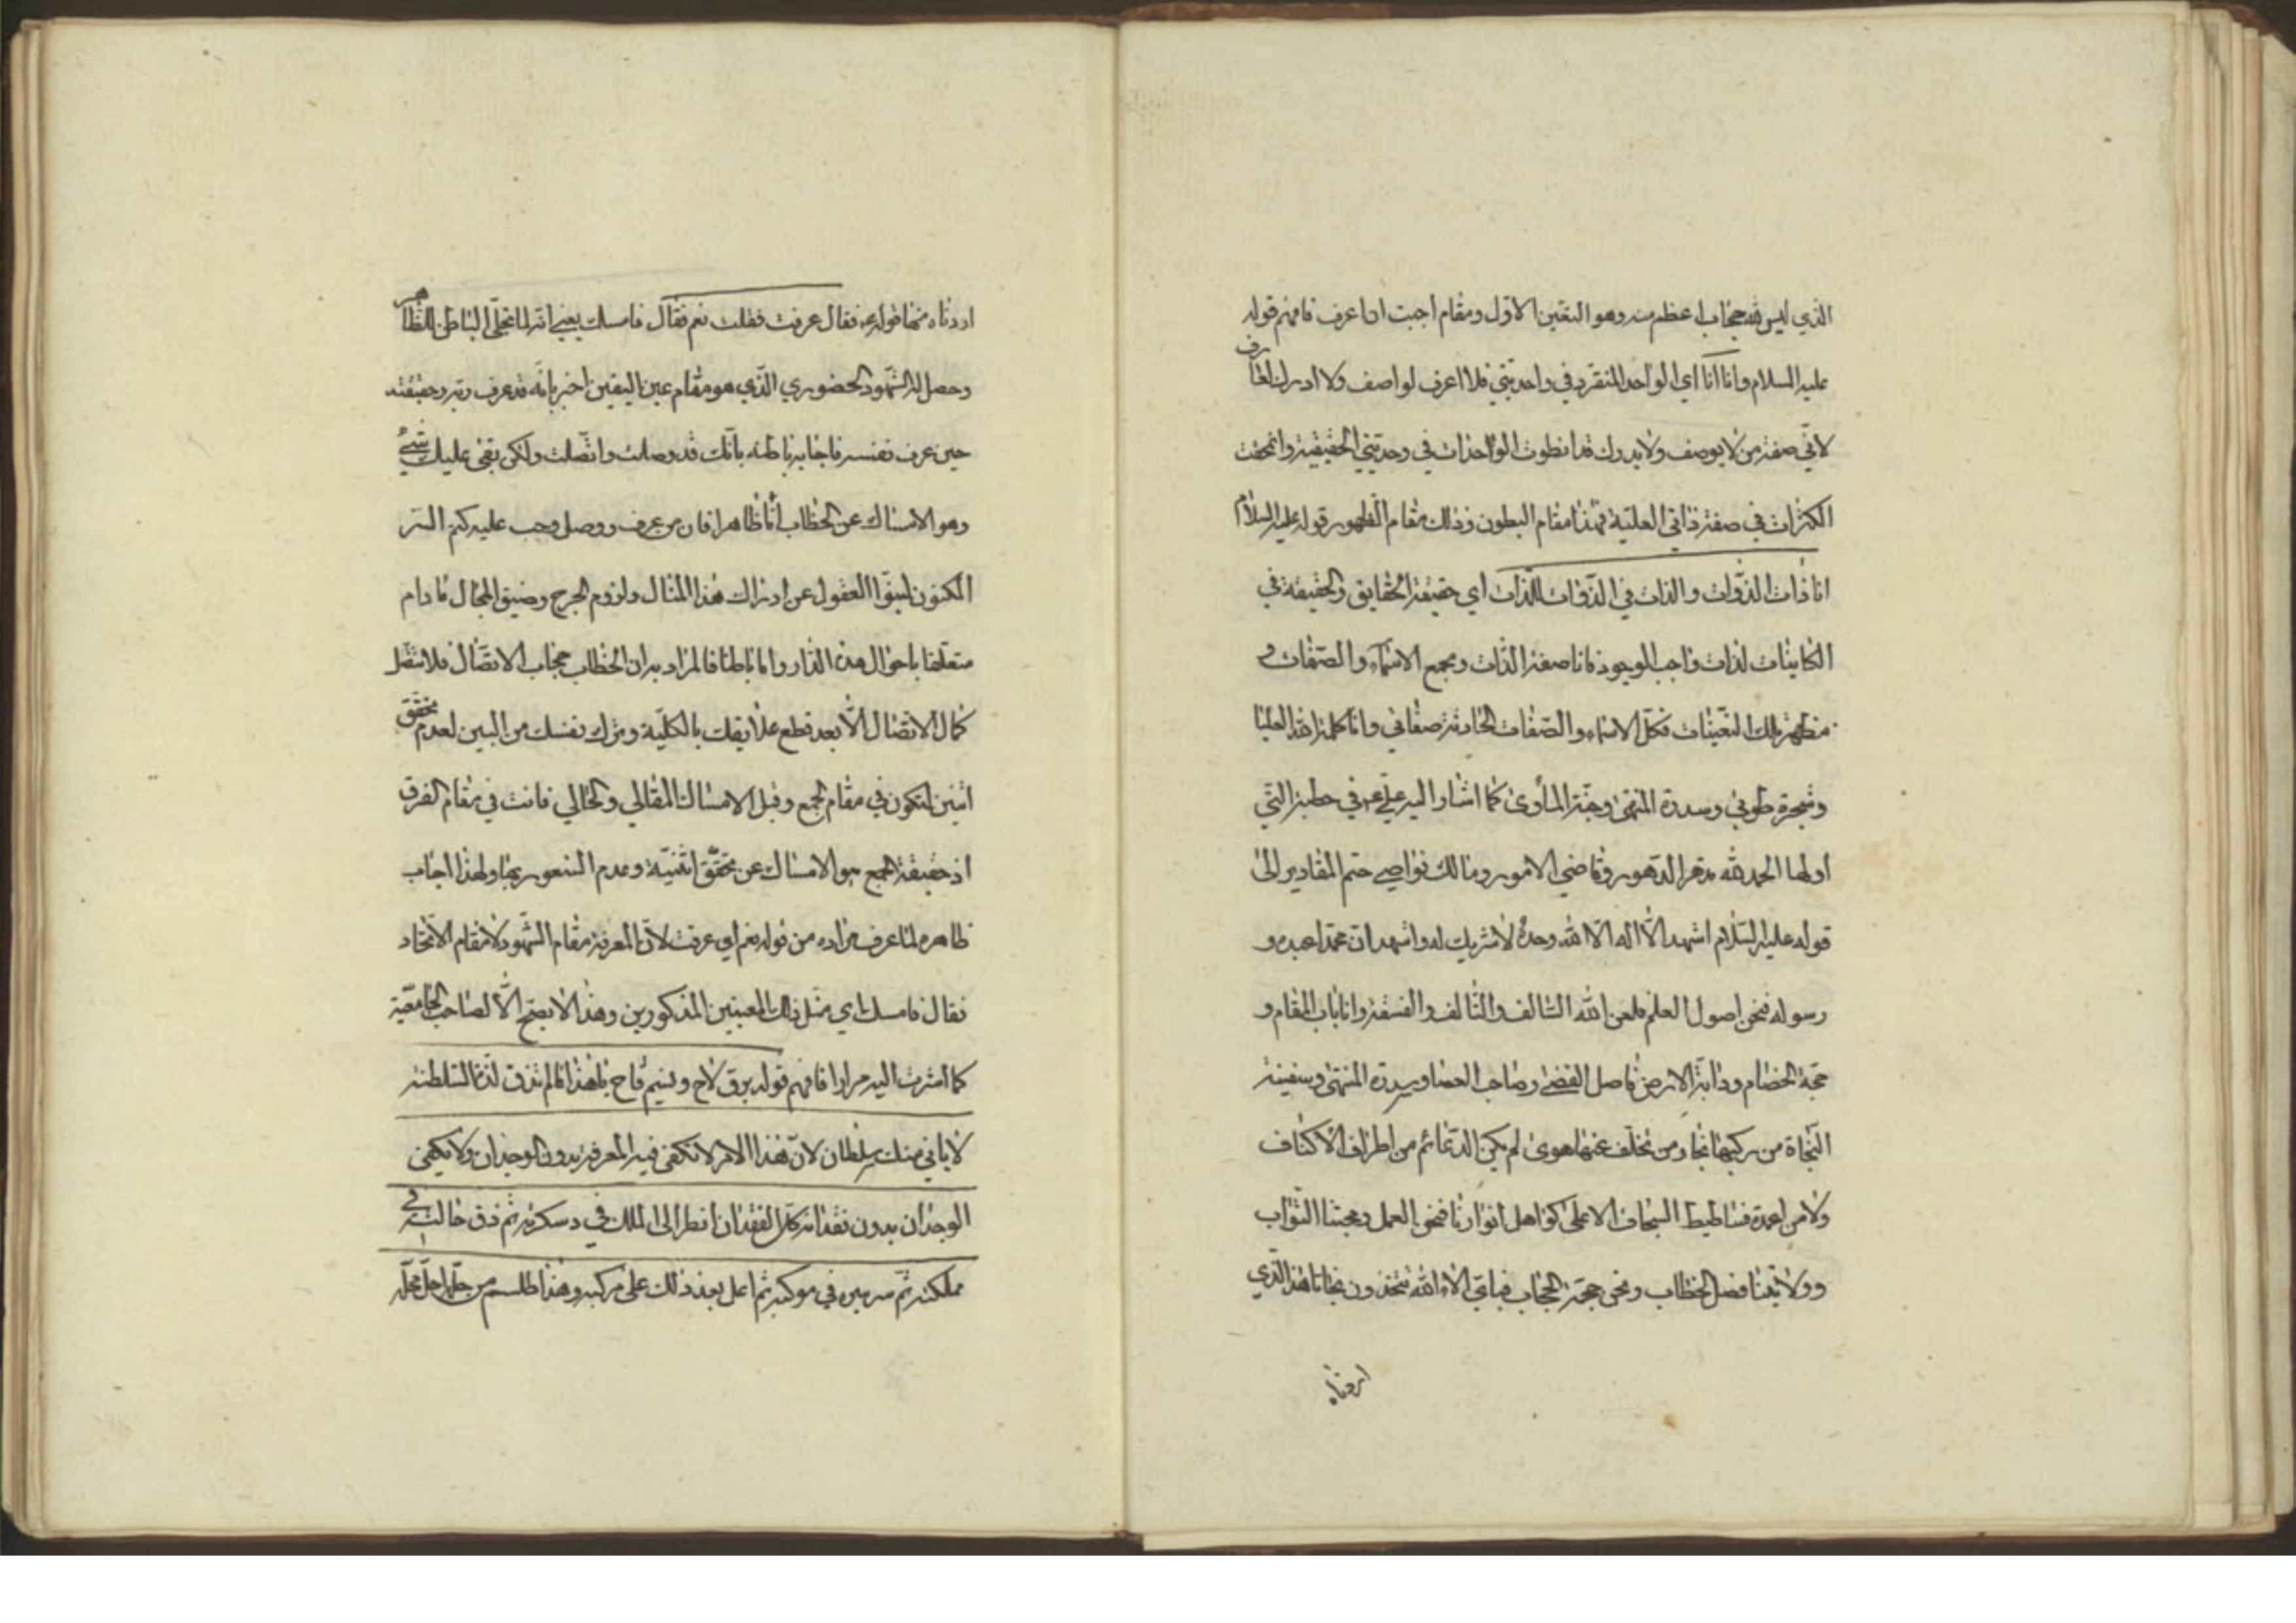 الذي ليس لله حجاب اعظم منه وهو التعين الاول ومقام احببت ان اعرف فافهم قوله
عليه السلام وانا انا اي الواحد المنفرد في واحديتي فلا اعرف لواصف ولا ادرك لعارف
لانّي صفة من لا يوصف ولا يدرك قد انطوت الواحدات في وحديتي الحقيقية وانمحقت
الكثرات في صفة ذاتي العليّة فهذا مقام البطون وذلك مقام الظهور قوله عليه السلام
انا ذات الذوات والذات في الذوات للذات اي حقيقة الحقايق والحقيقة في
الكاينات لذات واجب الوجود فانا صفة الذات ومجمع الاسماء والصفات و
مظهر تلك التعينات فكل الاسماء والصفات الحادثة صفاتي وانا كلمة الله العليا
وشجرة طوبى وسدرة المنتهى وجنة المأوى كما اشار اليه علي ع في خطبة التي
اولها الحمد لله مدهر الدهور وقاضي الامور ومالك نواصي حتم المقادير الى
قوله عليه السلام اشهد الا اله الا الله وحده لا شريك له واشهد ان محمدا عبده و
رسوله فنحن اصول العلم فلعن الله السالف والتالف والفسقة وانا باب المقام و
حجة الخصام ودابة الارض فاصل القضى وصاحب العصا وسدرة المنتهى وسفينة
النجاة من ركبها نجا ومن تخلف عنها هوى لم يكن الدعائم من اطراف الاكناف
ولا من اعمدة فساطيط السجاف الا على كواهل انوارنا فنحن العمل ومحبتنا الثواب
وولايتنا فصل الخطاب ونحن حجبة الحجاب فباي الاء الله تتخذون نجانا هذا الذي
اردناه
اردناه منها قوله ع فقال عرفت فقلت نعم فقال فامسك يعني انه لما تجلى الباطن للظاهر
وحصل له الشهود الحضوري الذي هو مقام عين اليقين اخبر بانه قد عرف ربه وحقيقته
حين عرف نفسه فاجابه باطنه بانك قد وصلت واتصلت ولكن بقى عليك شيئ
وهو الامساك عن الخطاب أمّا ظاهرا فان من عرف ووصل وجب عليه كتم السر
المكنون لنبو العقول عن ادراك هذا المثال ولزوم الحرج وضيق المجال ما دام
متعلقا باحوال هذه الدار واما باطنا فالمراد به ان الخطاب حجاب الاتصال فلا تتصل
كمال الاتصال الا بعد قطع علايقك بالكلية وترك نفسك من البين لعدم تحقق
اثنين لتكون في مقام الجمع وقبل الامساك المقالي والحالي فانت في مقام الفرق
اذ حقيقة الجمع هو الامساك عن تحقق اثنينية وعدم الشعور بها ولهذا اجاب
ظاهره لما عرف مراده من قوله نعم اي عرفت لان المعرفة مقام الشهود لا مقام الاتحاد
فقال فامسك اي مثل ذلك المعنيين المذكورين وهذا لا يصح الا لصاحب الجامعية
كما اشرت اليه مرارا فافهم قوله برق لاح ونسيم فاح يا هذا ما لم تذق لذة السلطنة
لا ياتي منك سلطان لان هذا الامر لا تكفي فيه المعرفة بدون الوجدان ولا يكفي
الوجدان بدون فقدانه كل الفقدان انظر الى الملك في دسكرته ثم ذق حالته في
مملكته ثم سر بسره في موكبه ثم اعل بعد ذلك على مركبه وهذا طلسم من حله احل محله